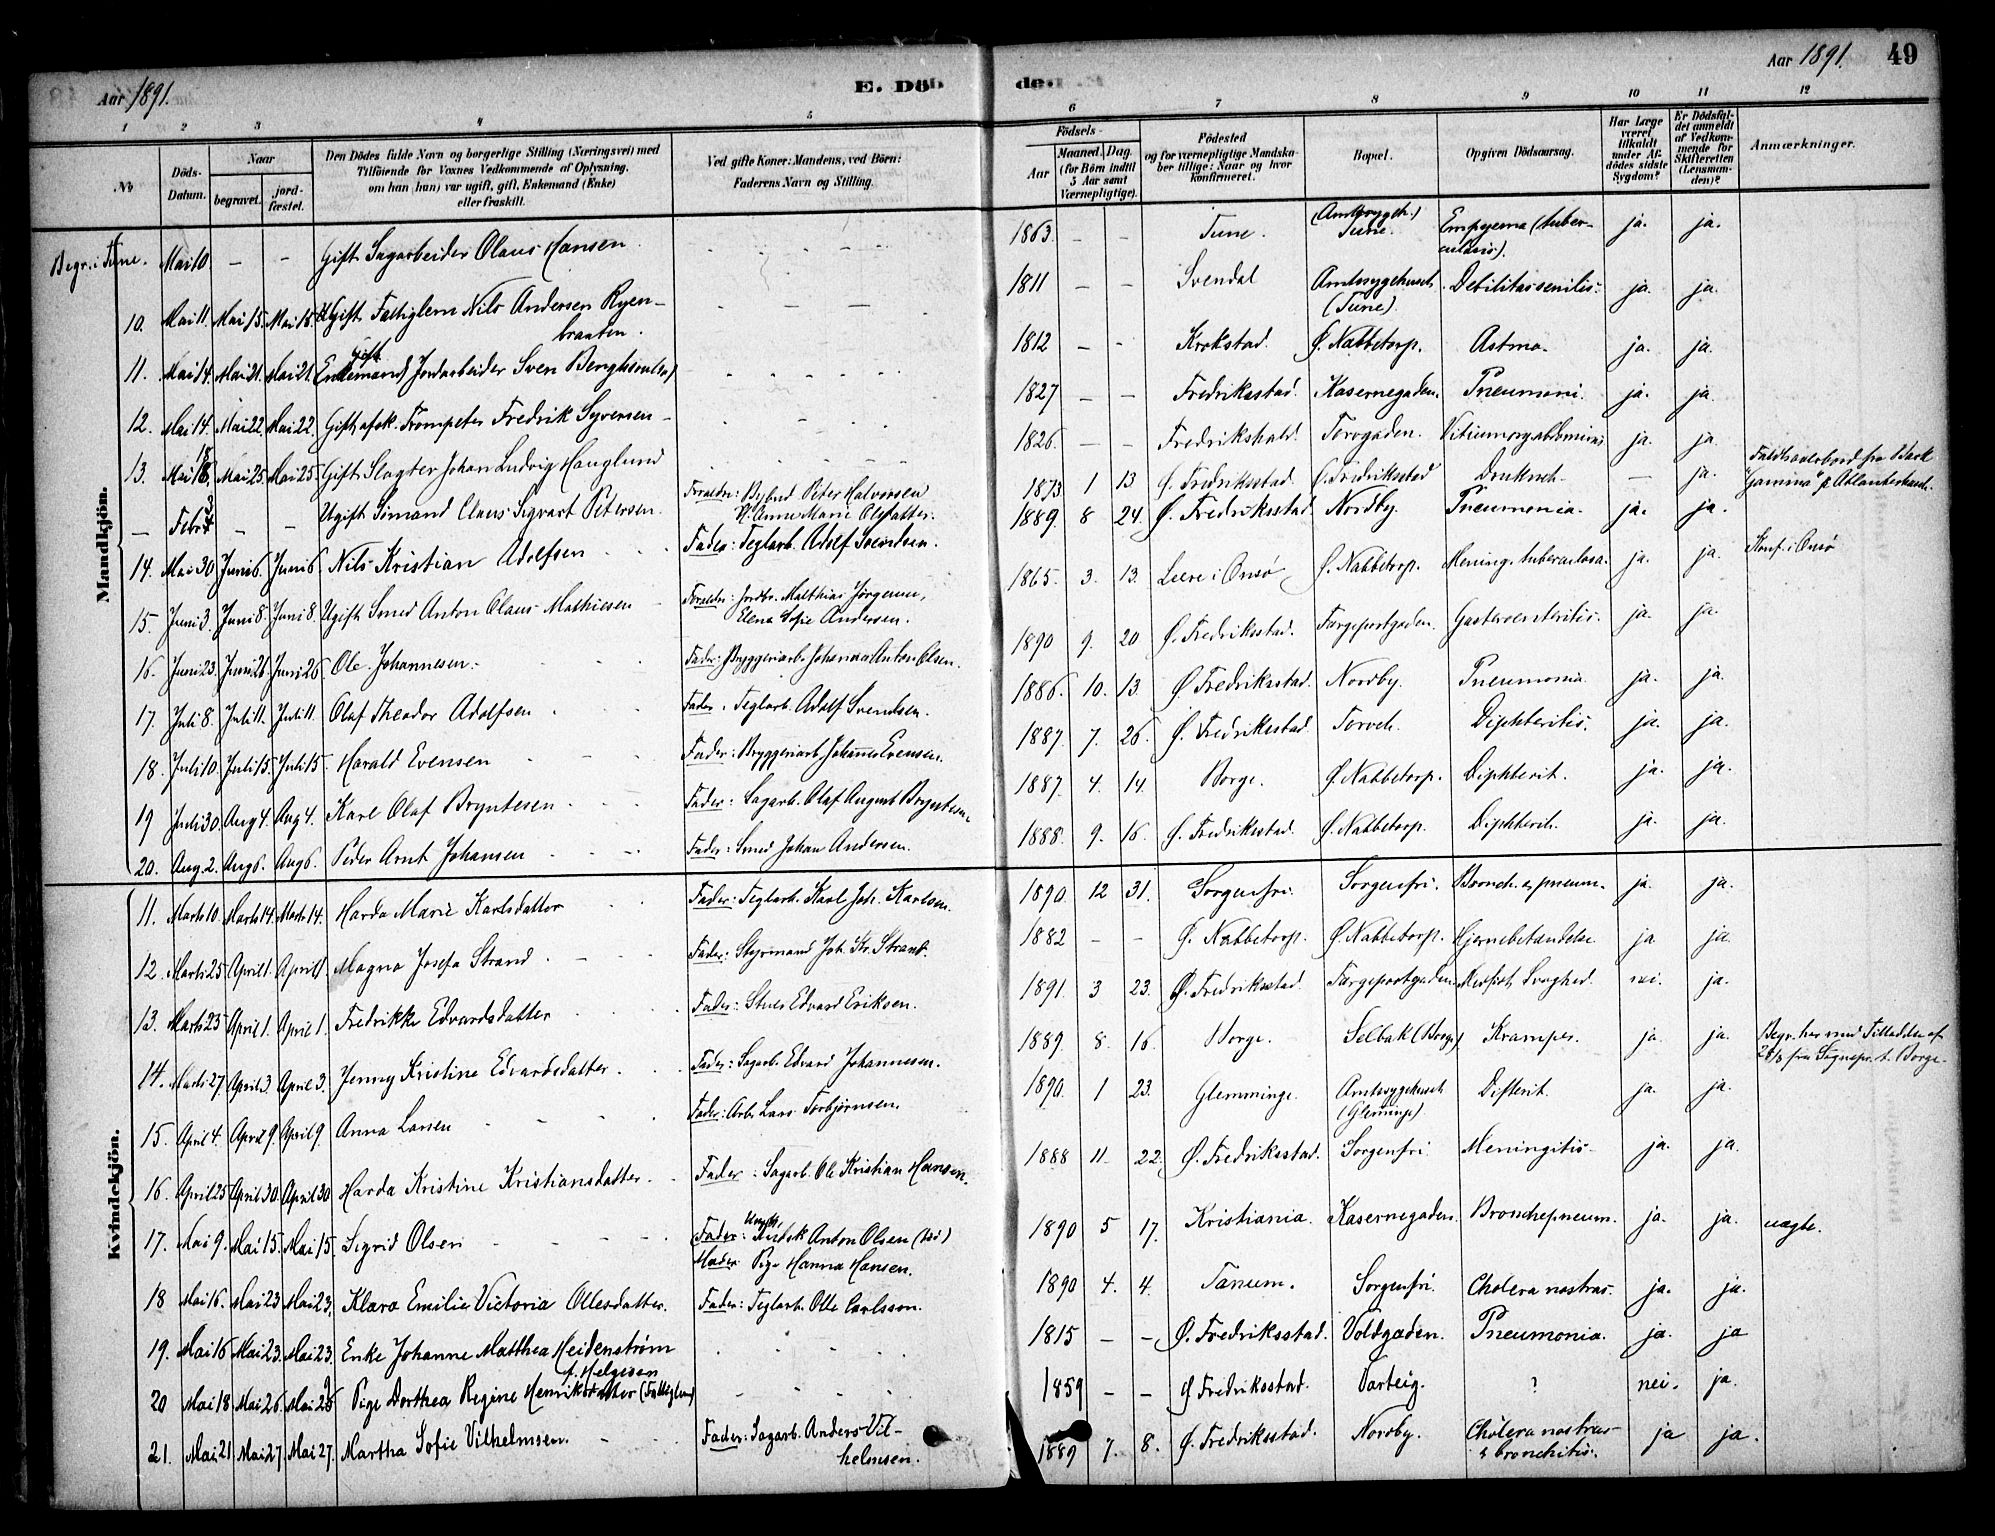 Aar 1891.
E. Døde.
Aar 1891.
49
1 2 3 4 5 6 7 8 9 10 11 12
No
Döds-Datum.
Naar
begravet.
jord-fæstet.
Den Dödes fulde Navn og borgerlige Stilling (Næringsvei) med
Tilföiende for Voxnes Vedkommende af Oplysning,
om han (hun) var ugift, gift, Enkemand (Enke)
eller fraskilt.
Ved gifte Koner: Mandens, ved Börn:
Faderens Navn og Stilling.
Födsels-
Aar
Maaned. Dag.
(for Börn indtil
5 Aar samt
Værnepligtige).
Födested
og for værnepligtige Mandska-
ber tillige: Naar og hvor
konfirmeret.
Bopæl.
Opgiven Dödsaarsag.
Har Læge
været
tilkaldt
under Af-
dödes sidste
Sygdom?
Er Dödsfal-
det anmeldt
af Vedkom-
mende for
Skifteretten
(Lensman-
den)?
Anmærkninger.
Mandkjön.
Begr. i Tune. Mai 10 — — Gift Sagarbeider Olaus Hansen. 1863 — — Tune. (Amtssygeh.) Tune. Empyema (tuber-
culosis). ja. ja.
10. Mai 11. Mai 15. Mai 15. Ugift Fattiglem Nils Andersen Ryen-
braaten. 1811 — — Svendal Amtssygehuset
(Tune). Debilitas senilis. ja. ja.
11. Mai 14. Mai 21. Mai 21. Gift (Enkemand) Jordarbeider Sven 1812 — — Krokstad. Ø. Nabbetorp. Astma. ja. ja.
12. Mai 14. Mai 22. Mai 22. Gift afsk. Trompeter Fredrik Syversen 1827 — — Fredriksstad. Kasernegaden. Pneumoni. ja. ja
13. Mai 18. Mai 25. Mai 25. Gift Slagter Johan Ludvig Hauglund 1826 — — Fredrikshald. Torvgaden. Vitium org. abdominis ja. ja.
— Febr. 3 — — Ugift Sömand Claus Sigvart Petersen. Forældre: Byfud Peter Halvorsen
H. Anne Marie Olsdatter. 1873 1 13 Ø. Fredriksstad. Ø. Fredriksstad Druknet. — ja. Faldt overbord fra Skib
"Gamma" på Atlanterhavet.
14. Mai 30 Juni 6. Juni 6 Nils Kristian Adolfsen Fader: Teglarb. Adolf Svendsen. 1889. 8 24. Ø. Fredriksstad Nordby. Pneumonia. ja. ja.
15. Juni 3. Juni 8. Juni 8. Ugift Smed Anton Olaus Mathiesen Forældre: Jordbr. Matthias Jörgensen,
Elena Sofie Andersen. 1865. 3. 13. Leere i Onsø Ø. Nabbetorp. Mening. tuberculosa. ja. ja. Konf. i Onsø
16. Juni 23. Juni 26. Juni 26 Ole Johannesen. Fader: Bryggeriarb. Johannes Anton Olsen. 1890 9. 20 Ø. Fredriksstad. Færgeportgaden. Gasteroenteritis. ja. ja.
17. Juli 8. Juli 11. Juli 11. Olaf Theodor Adolfsen Fader. Teglarb. Adolf Svendsen. 1886. 10. 13. Ø. Fredriksstad. Nordby. Pneumonia ja. ja.
18. Juli 10 Juli 15. Juli 15 Harald Evensen Fader: Bryggeriarb. Johannes Evensen. 1887. 7. 26. Ø. Fredriksstad Torvet. Diphteritis. ja. ja.
19 Juli 30. Aug 4. Aug 4. Karl Olaf Bryntesen Fader: Sagarb. Olaf August Bryntesen. 1887. 4. 14. Borge. Ø. Nabbetorp. Diphterit. ja. ja.
20. Aug. 2. Aug 6. Aug 6. Peder Arnt Johansen Fader: Smed Johan Andersen. 1888. 9. 16. Ø. Fredriksstad. Ø. Nabbetorp. Diphterit. ja. ja.
Kvindekjön.
11. Marts 10 Marts 14. Marts 14. Harda Marie Karlsdatter Fader: Teglarb. Karl Joh. Karlsen. 1890. 12 31. Sorgenfri. Sorgenfri. Bronch. & pneum. ja. ja.
12. Marts 25 April 1. April 1 Magna Josefa Strand Fader: Styrmand Joh. Kr. Strand. 1882 — — Ø. Nabbetorp. Ø. Nabbetorp. Hjernebetændelse ja ja.
13. Marts 23 April 1. April 1. Fredrikke Edvardsdatter Fader: Stuer Edvard Eriksen. 1891. 3 23. Ø. Fredriksstad. Færgeportgaden. Medfødt Svaghed. nei. ja.
14. Marts 27 April 3 April 3. Jenny Kristine Edvardsdatter. Fader: Sagarb. Edvard Johannesen. 1889. 8. 16. Borge. Selbak (Borge) Kramper. ja. ja. Begr. her med Tilladelse af
28/3 fra Sognepr. t. Borge.
15. April 4. April 9 April 9. Anna Larsen Fader: Arb. Lars Torbjørnsen. 1890. 1 23. Glemminge. Amtssygehuset
(Glemminge) Difterit. ja. ja.
16. April 25 April 30 April 30 Harda Kristine Kristiansdatter. Fader: Sagarb. Ole Kristian Hansen. 1888 11. 22. Ø. Fredriksstad. Sorgenfri. Meningitis. ja. ja.
17. Mai 9. Mai 15. Mai 15. Sigrid Olsen Fader: Ungk. Anton Olsen
Moder: Pige Hanna Hansen. 1890 5 17. Kristiania. Kasernegaden. Bronchopneum. ja. ja. uægte.
18 Mai 16. Mai 23 Mai 23. Klara Emilie Victoria Ollesdatter. Fader: Teglarb. Olle Carlsson. 1890 4. 4. Tanum. Sorgenfri. Cholera nostras. ja. ja.
19. Mai 16 Mai 23. Mai 23. Enke Johanne Matthea Heidenstrøm
f. Helgesen 1815 — — Ø. Fredriksstad. Voldgaden. Pneumonia. ja. ja
20 Mai 18 Mai 26. Mai 26 Pige Dorthea Regine Henriksdatter (Fattiglem) 1859 — — Ø Fredriksstad. Varteig. ? nei. ja.
21. Mai 21 Mai 27. Mai 27. Martha Sofie Vilhelmsen. Fader: Sagarb. Anders Vil-
helmsen. 1889 7. 8. Ø. Fredriksstad. Nordby. Cholera nostras
& bronchitis. ja ja.